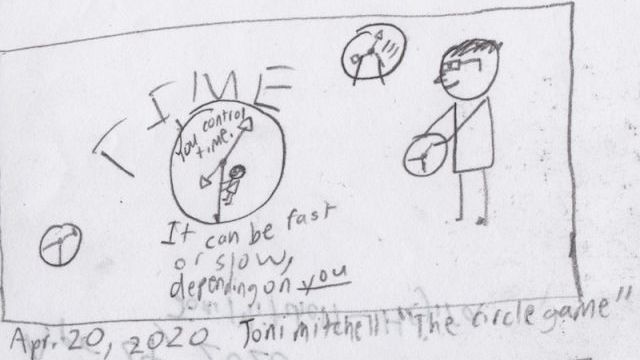 TIME
You control
time.
It can be fast
or slow,
depending on you
Apr. 20, 2020 Joni mitchell: "The circle game"